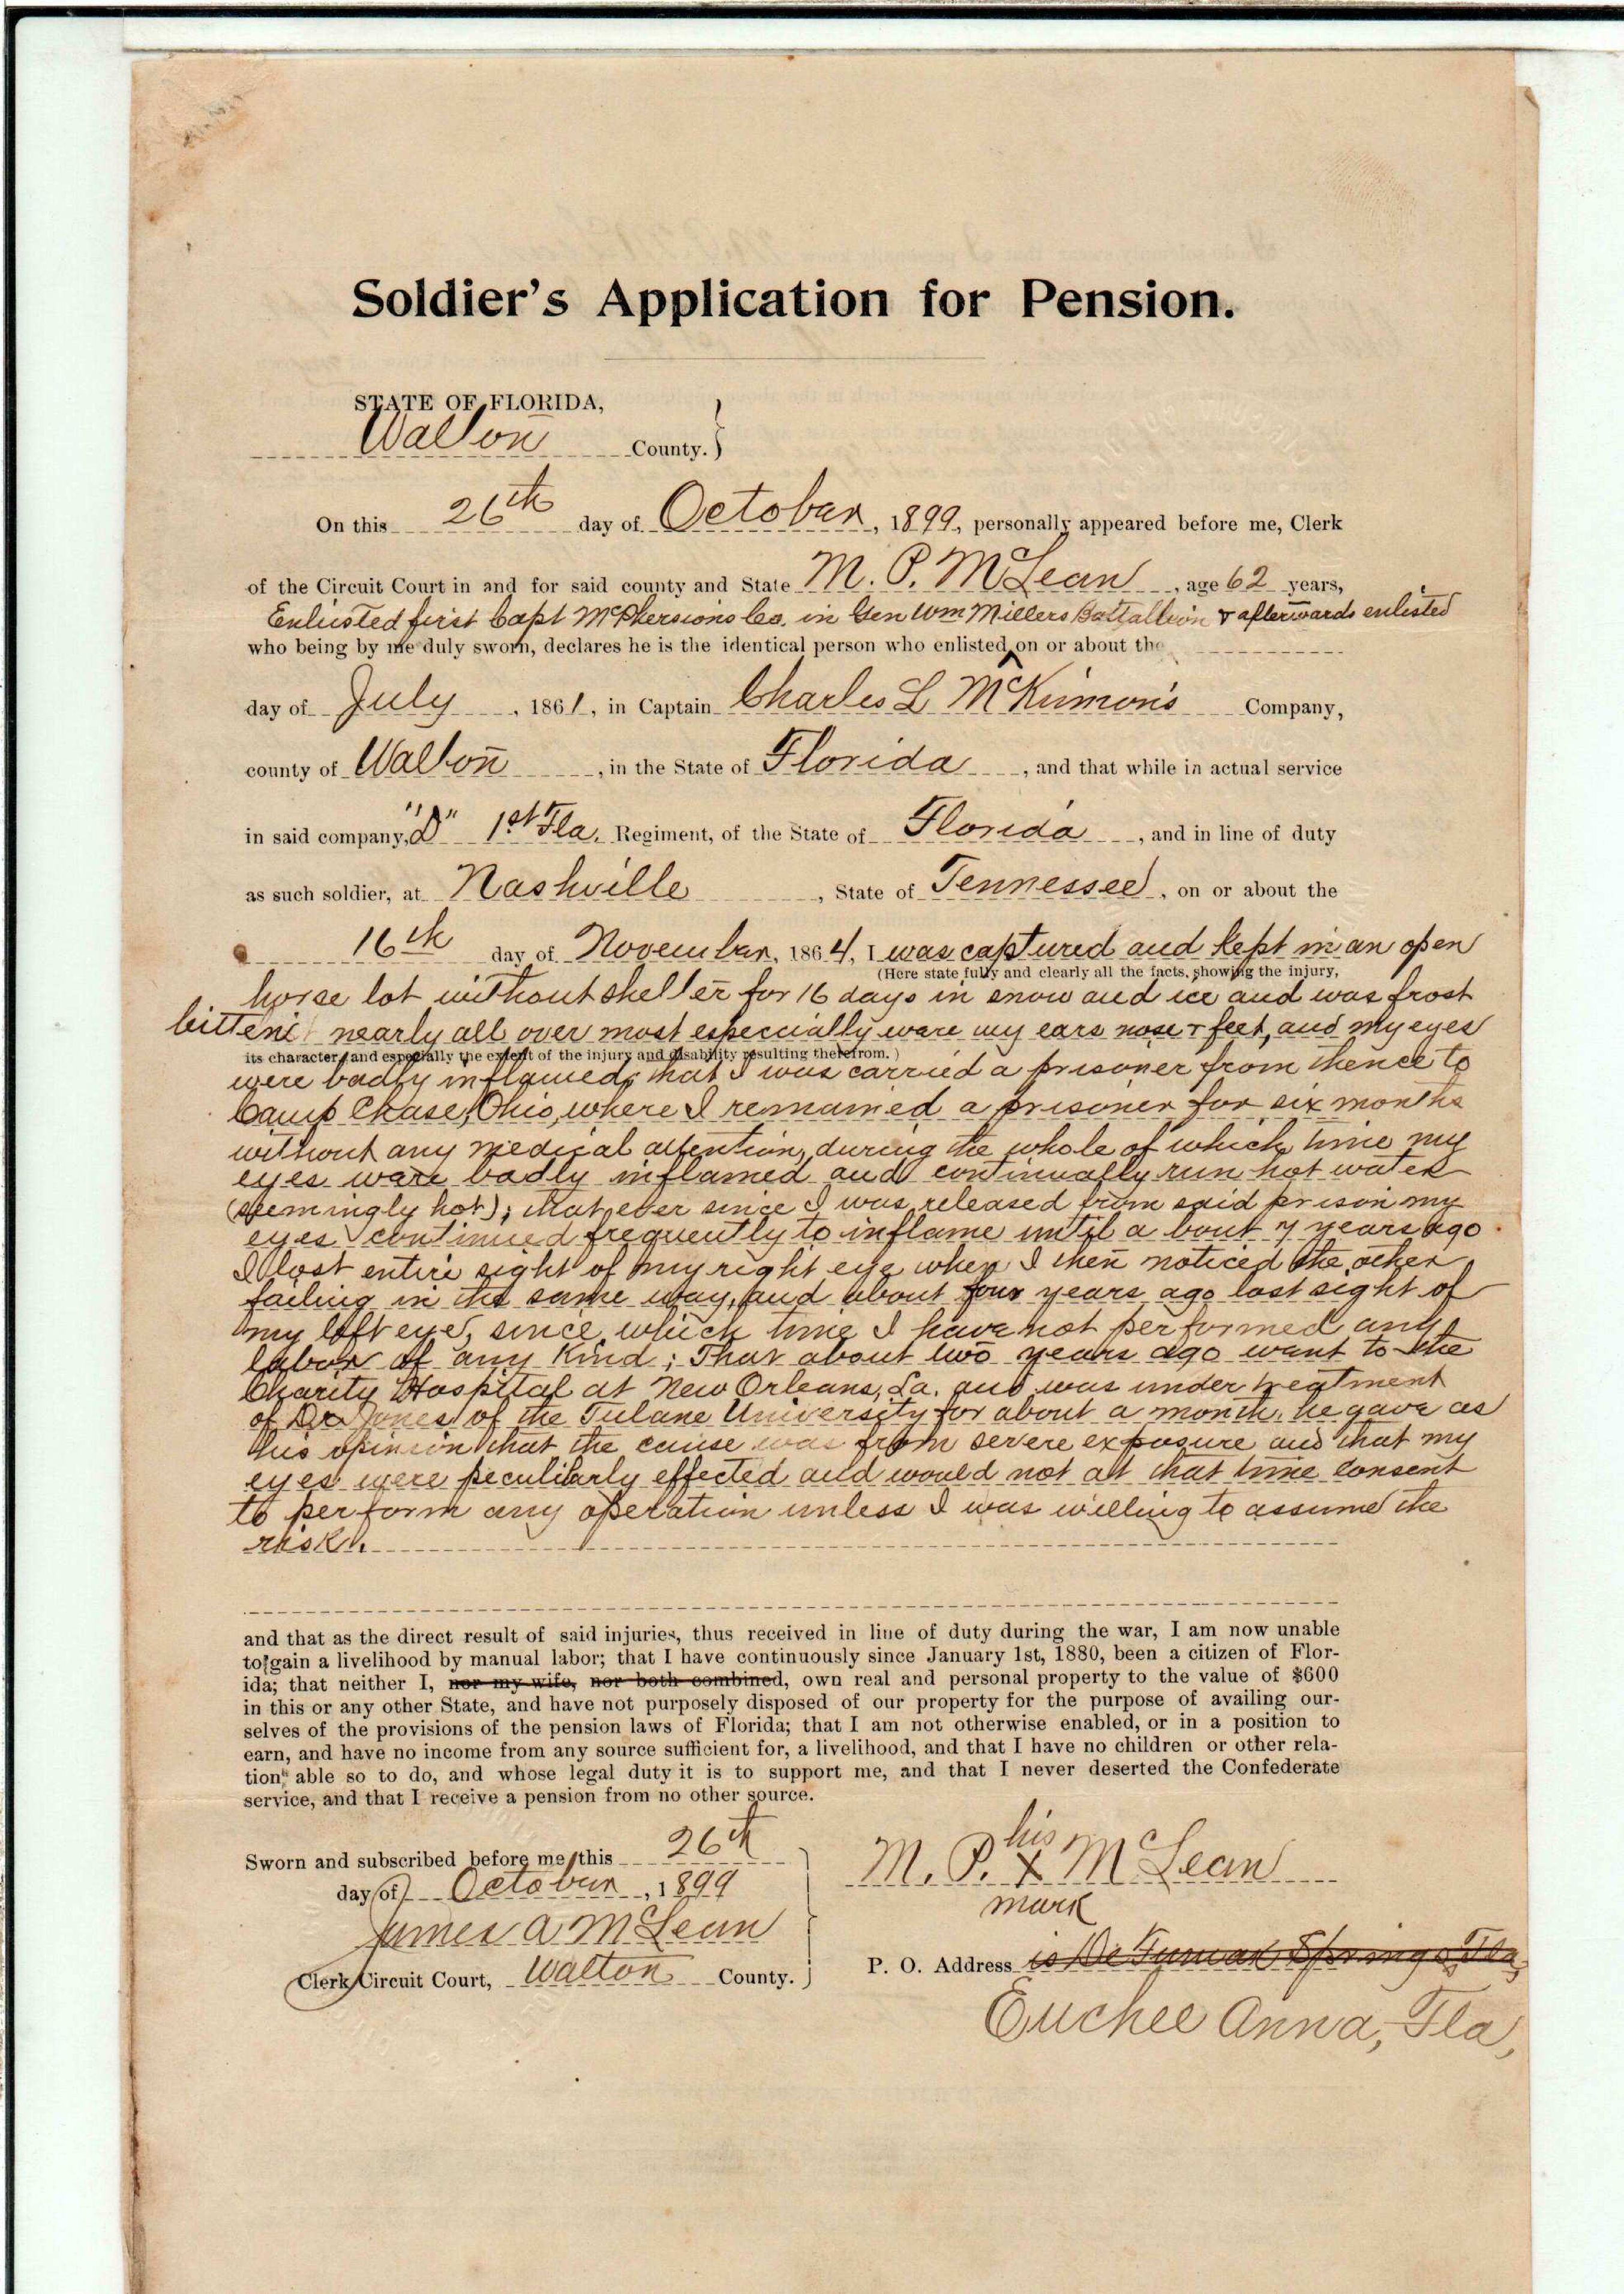 Soldier's Application for Pension.
STATE OF FLORIDA,
Walton County.
On this 26th day of October, 1899, personally appeared before me, Clerk
of the Circuit Court in and for said county and State M. P. McLean, age 62 years,
Enlisted first Capt McPhersions Co. in Gen Wm Millers Battallion & afterwards enlisted
who being by me duly sworn, declares he is the identical person who enlisted on or about the
day of July, 1861, in Captain Charles L McKinnon's Company,
county of Walton, in the State of Florida, and that while in actual service
in said company, "D" 1st Fla. Regiment, of the State of Florida, and in line of duty
as such soldier, at Nashville, State of Tennessee, on or about the
16th day of November, 1864, I was captured and kept in an open
(Here state fully and clearly all the facts, showing the injury,
horse lot without shelter for 16 days in snow and ice and was frost
bitten nearly all over most especially ware my ears nose & feet, and my eyes
its character, and especially the extent of the injury and disability resulting therefrom.)
were badly inflamed, that I was carried a prisoner from thence to
Camp Chase, Ohio, where I remained a prisoner for six months
without any medical attention, during the whole of which time my
eyes ware badly inflamed and continually run hot water
(seemingly hot); that ever since I was released from said prison my
eyes continued frequently to inflame until a bout 7 years ago
I lost entire sight of my right eye when I then noticed the other
failing in the same way, and about four years ago lost sight of
my left eye, since which time I have not performed any
labor of any Kind; That about two years ago want to the
Charity Hospital at New Orleans, La. and was under treatment
of Dr Jones of the Tulane University for about a month, he gave as
his opinion that the cause was from severe exposure and that my
eyes were peculiarly effected and would not at that time consent
to perform any operation unless I was willing to assume the
risk.
and that as the direct result of said injuries, thus received in line of duty during the war, I am now unable
to gain a livelihood by manual labor; that I have continuously since January 1st, 1880, been a citizen of Flor-
ida; that neither I, nor my wife, nor both combined, own real and personal property to the value of $600
in this or any other State, and have not purposely disposed of our property for the purpose of availing our-
selves of the provisions of the pension laws of Florida; that I am not otherwise enabled, or in a position to
earn, and have no income from any source sufficient for, a livelihood, and that I have no children or other rela-
tions able so to do, and whose legal duty it is to support me, and that I never deserted the Confederate
service, and that I receive a pension from no other source.
Sworn and subscribed before me this 26th
day of October, 1899
James A McLean
Clerk Circuit Court, Walton County.
his
M. P. X McLean
mark
P. O. Address is De Funiak Springs, Fla,
Euchee Anna, Fla,